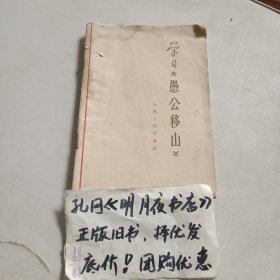 学习《愚公移山》
孔网《明月夜书店》
正版旧书，择优发
底价！团购优惠